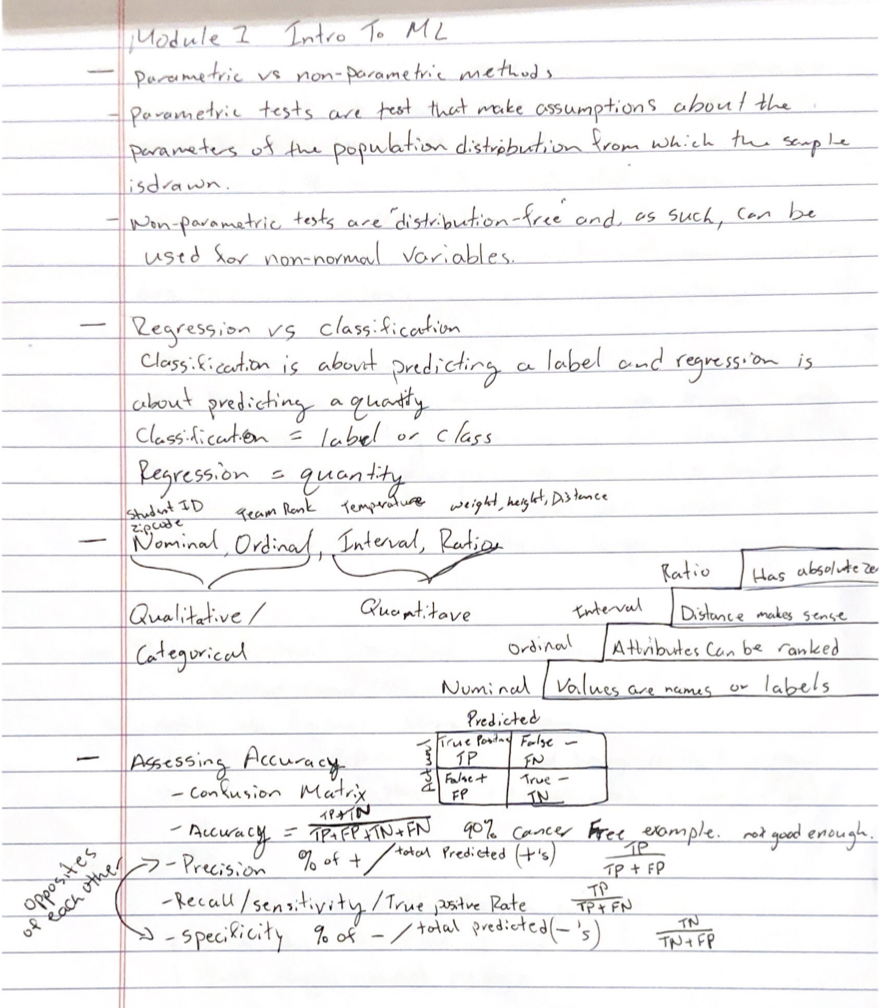 Module 1 Intro To ML
— Parametric vs non-parametric methods
- Parametric tests are test that make assumptions about the
parameters of the population distribution from which the sample
isdrawn.
- Non-parametric tests are "distribution-free" and, as such, can be
used for non-normal variables.
— Regression vs classification
Classification is about predicting a label and regression is
about predicting a quantity
Classification = label or class
Regression = quantity
Student ID Team Rank Temperature weight, height, Distance
zipcode
— Nominal, Ordinal, Interval, Ratio
Ratio Has absolute ze
Qualitative / Quantitave Interval Distance makes sense
Categorical Ordinal Attributes Can be ranked
Nominal Values are names or labels
Predicted
— Assessing Accuracy Actual True Positive False —
TP FN
- Confusion Matrix False + True —
FP TN
- Accuracy = TP+TN / TP+FP+TN+FN 90% Cancer Free example. not good enough.
opposites of each other
- Precision % of + / total Predicted (+'s) TP / TP + FP
- Recall / sensitivity / True positve Rate TP / TP+FN
- specificity % of — / total predicted (—'s) TN / TN+FP